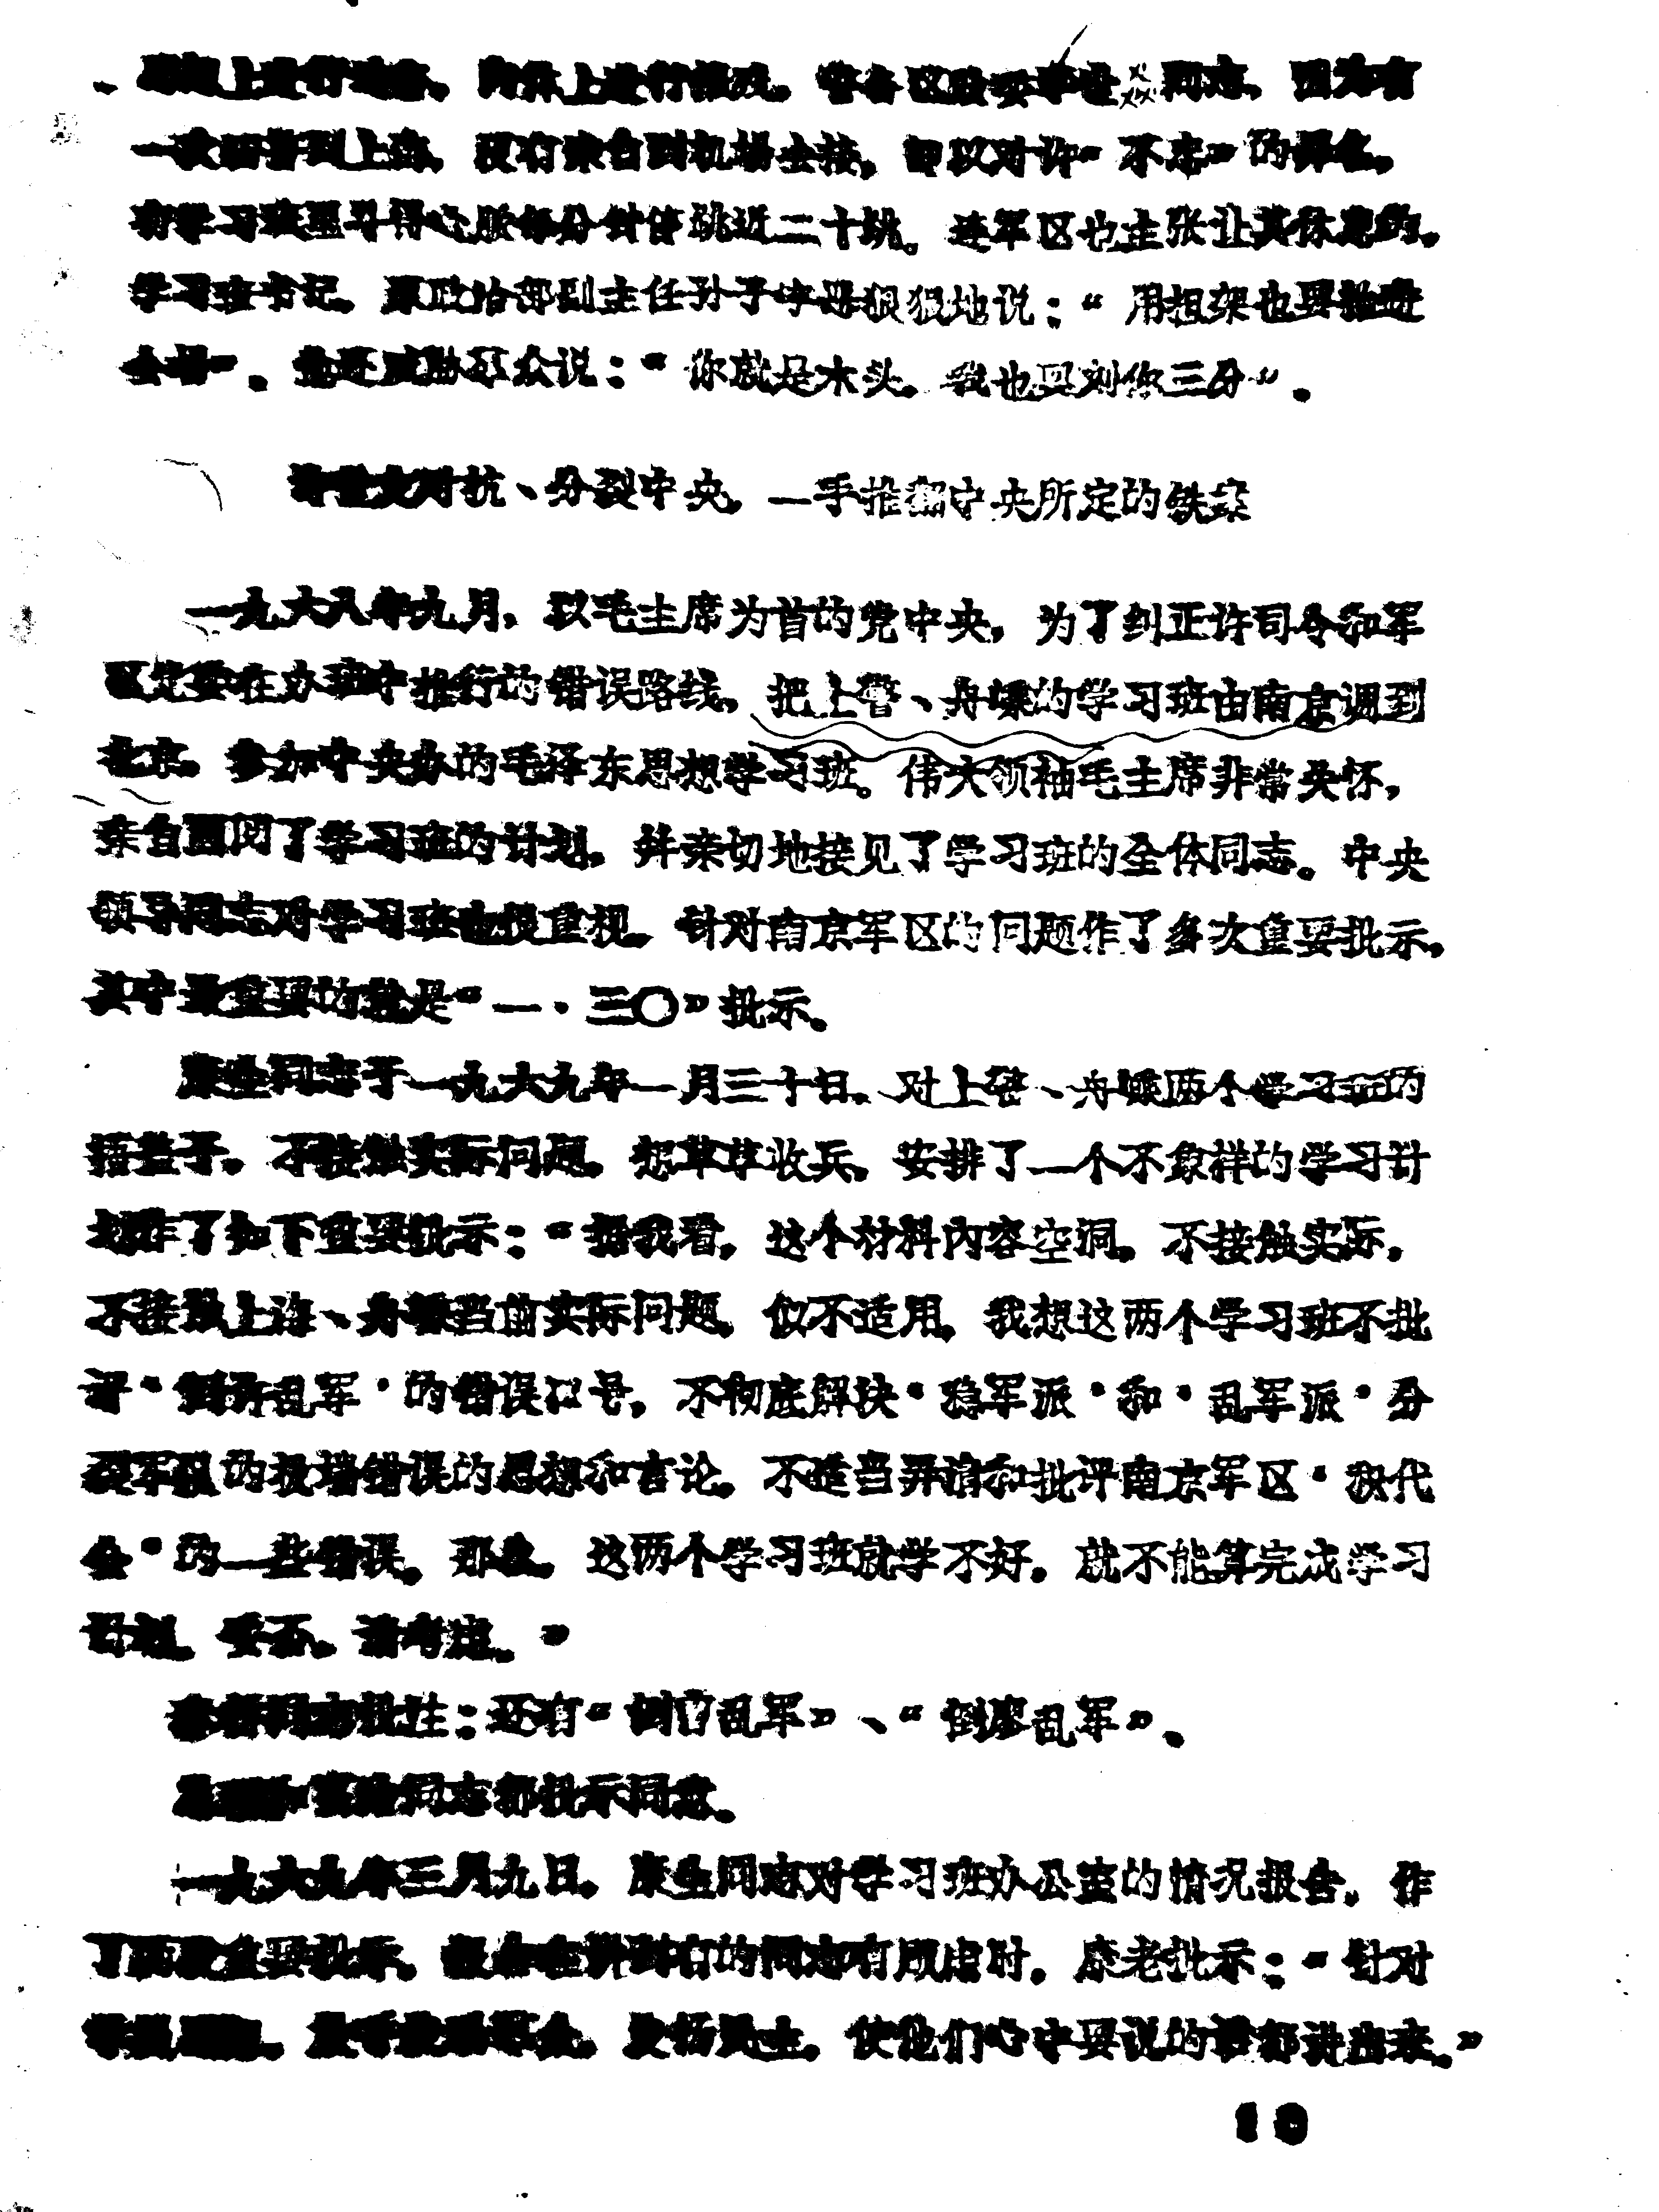 上进行 、肉体上进行摧残。 同志，因为有
一次 到上海，没有亲自到机场去接，即以对许“不忠”的罪名，
学习班 斗得心脏每分钟停跳近二十跳。连军区也主张让其休息的，
学习班书记、原政治部副主任孙子宇恶狠狠地说：“用担架也要抬进
会场”。他还威胁群众说：“你就是木头，我也要刘你三分”。
对抗、分裂中央，一手推翻中央所定的铁案
一九六八年九月，以毛主席为首的党中央，为了纠正许司令和军
区党委在办班中推行的错误路线，把上警、舟嵊的学习班由南京调到
北京，参加中央办的毛泽东思想学习班。伟大领袖毛主席非常关怀，
亲自圈阅了学习班的计划，并亲切地接见了学习班的全体同志。中央
领导同志对学习班也很重视，针对南京军区的问题作了多次重要批示，
其中最重要的就是“一·三〇”批示。
康生同志于一九六九年一月三十日，对上警、舟嵊两个学习班的
捂盖子，不接触实际问题，想草草收兵，安排了一个不象样的学习计
划作了如下重要批示：“据我看，这个材料内容空洞，不接触实际，
不接触上海、舟嵊当前实际问题，似不适用。我想这两个学习班不批
评‘倒许乱军’的错误口号，不彻底解决‘稳军派’和‘乱军派’分
裂军队的极端错误的思想和言论，不适当弄清和批评南京军区‘积代
会’的一些错误，那么，这两个学习班就学不好，就不能算完成学习
计划。妥否，请考虑。”
同志批注：还有“倒 乱军”、“倒廖乱军”。
同志都批示同意。
一九六九年三月九日，康生同志对学习班办公室的情况报告，作
了两次重要批示。 有的同志有顾虑时，康老批示：“针对
发扬民主，使他们心中要说的都讲出来。”
10